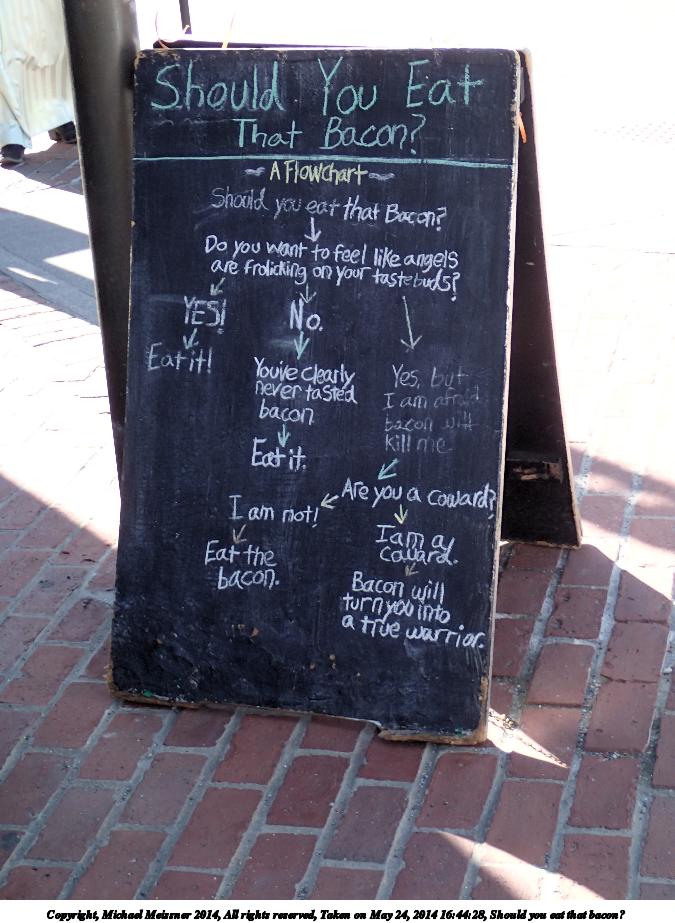 Should You Eat
That Bacon?
~ A Flowchart ~
Should you eat that Bacon?
Do you want to feel like angels
are frolicking on your tastebuds?
YES!
Eat it!
No.
You've clearly
never tasted
bacon
Eat it.
Yes, but
I am afraid
bacon will
kill me
Are you a coward?
I am not!
Eat the
bacon.
I am a
coward.
Bacon will
turn you into
a true warrior.
Copyright, Michael Meissner 2014, All rights reserved, Taken on May 24, 2014 16:44:28, Should you eat that bacon?